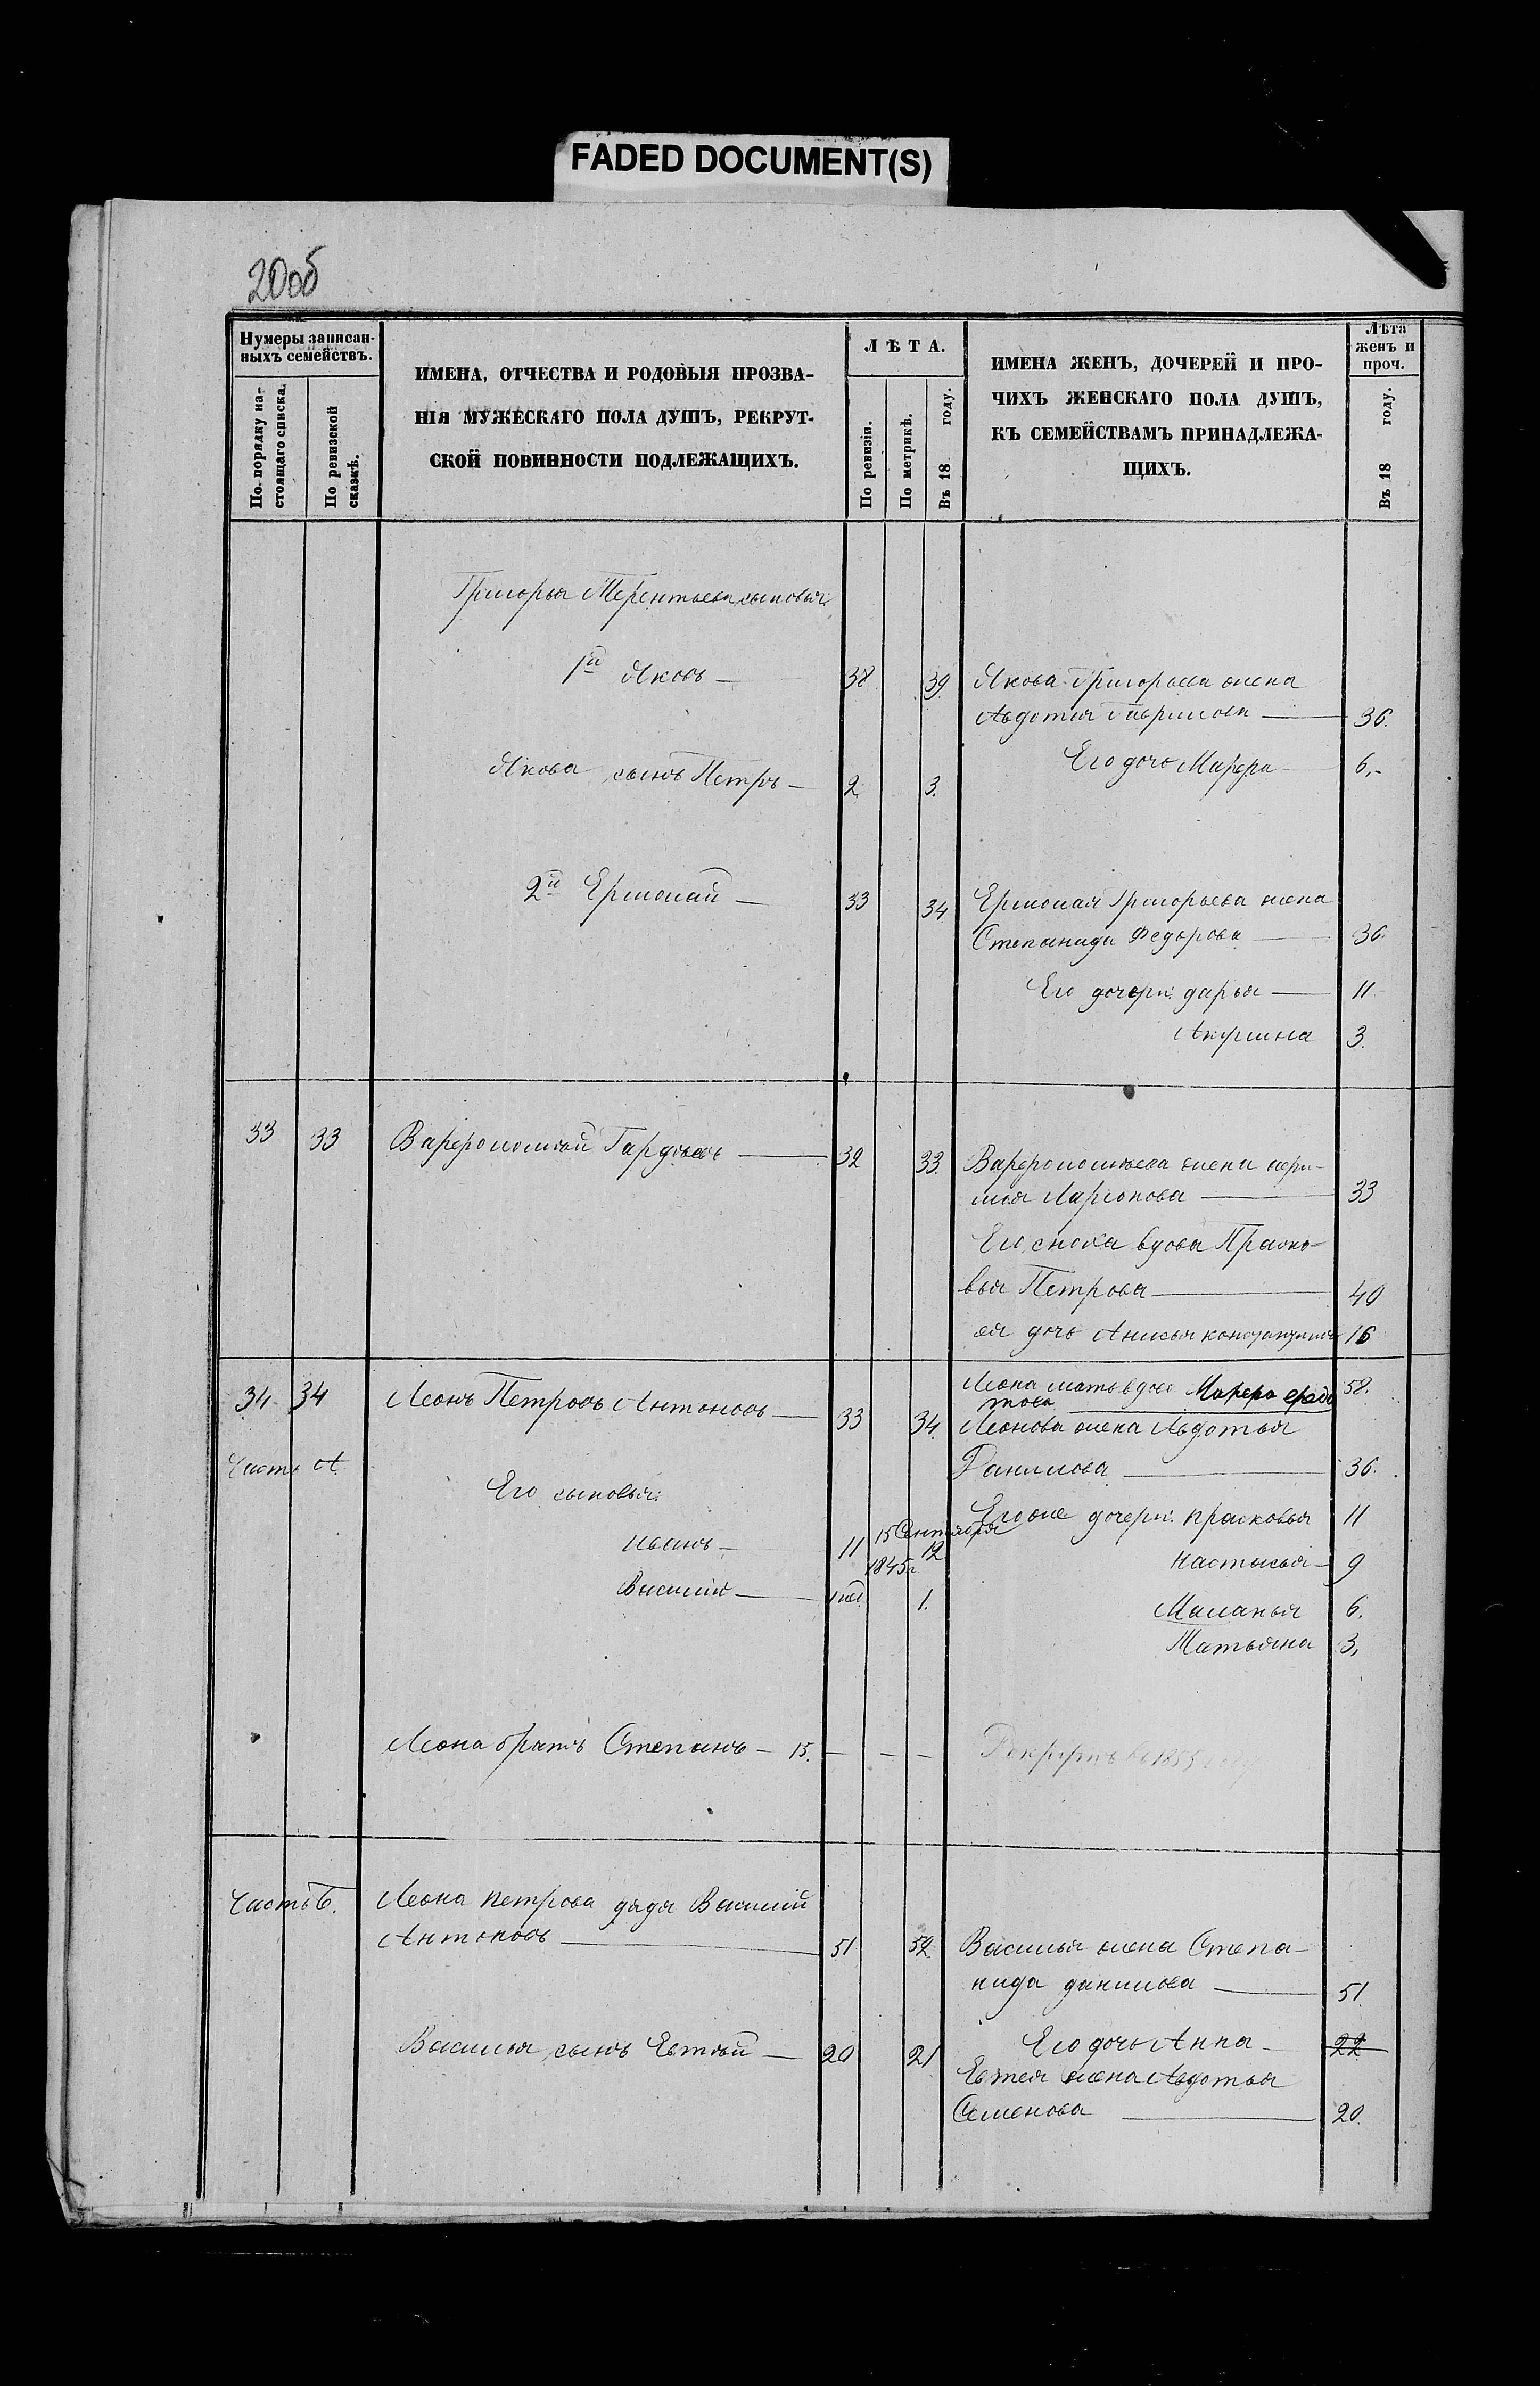 FADED DOCUMENT(S)
20об
Нумеры записан-
ныхъ семействъ.
По порядку на-
стоящаго списка.
По ревизской
сказкѣ.
ИМЕНА, ОТЧЕСТВА И РОДОВЫЯ ПРОЗВА-
НІЯ МУЖЕСКАГО ПОЛА ДУШЪ, РЕКРУТ-
СКОЙ ПОВИННОСТИ ПОДЛЕЖАЩИХЪ.
ЛѢТА.
По ревизіи.
По метрикѣ.
Въ 18 году.
ИМЕНА ЖЕНЪ, ДОЧЕРЕЙ И ПРО-
ЧИХЪ ЖЕНСКАГО ПОЛА ДУШЪ,
КЪ СЕМЕЙСТВАМЪ ПРИНАДЛЕЖА-
ЩИХЪ.
Лѣта
женъ и
проч.
Въ 18 году.
Григорья Терентьева сыновья:
1й Яковъ — 38 39 Якова Григорьева жена
Авдотья Гаврилова — 36.
Якова сынъ Петръ — 2. 3. Его дочь Марфа — 6.
2й Ермолай — 33 34 Ермолая Григорьева жена
Степанида Федорова — 36.
Его дочери: дарья — 11
Акулина 3.
33 33 Варфоломѣй Гордѣевъ — 32 33. Варфоломѣева жена
Ларіонова — 33
Его сноха вдова Праско-
вья Петрова — 40
ея дочь Анисья 16
34 34 Леонъ Петровъ Антоновъ — 33 34. Леона мать вдова Марфа 58.
Леонова жена Авдотья
Данилова — 36.
Часть А.
Его сыновья:
Его же дочери: Прасковья 11
Иванъ — 11 15 Сентября 1845г 12
Настасья — 9
Василій — 1. Маланья 6.
Татьяна 3.
Леона братъ Степанъ — 15. — — — Рекрутъ 1855
Часть Б. Леона Петрова дядя Василій
Антоновъ — 51 52 Василья жена Степа-
нида данилова — 51.
Василья сынъ Евтѣй — 20 21 Его дочь Анна — 22
Евтея жена Авдотья
Семенова — 20.